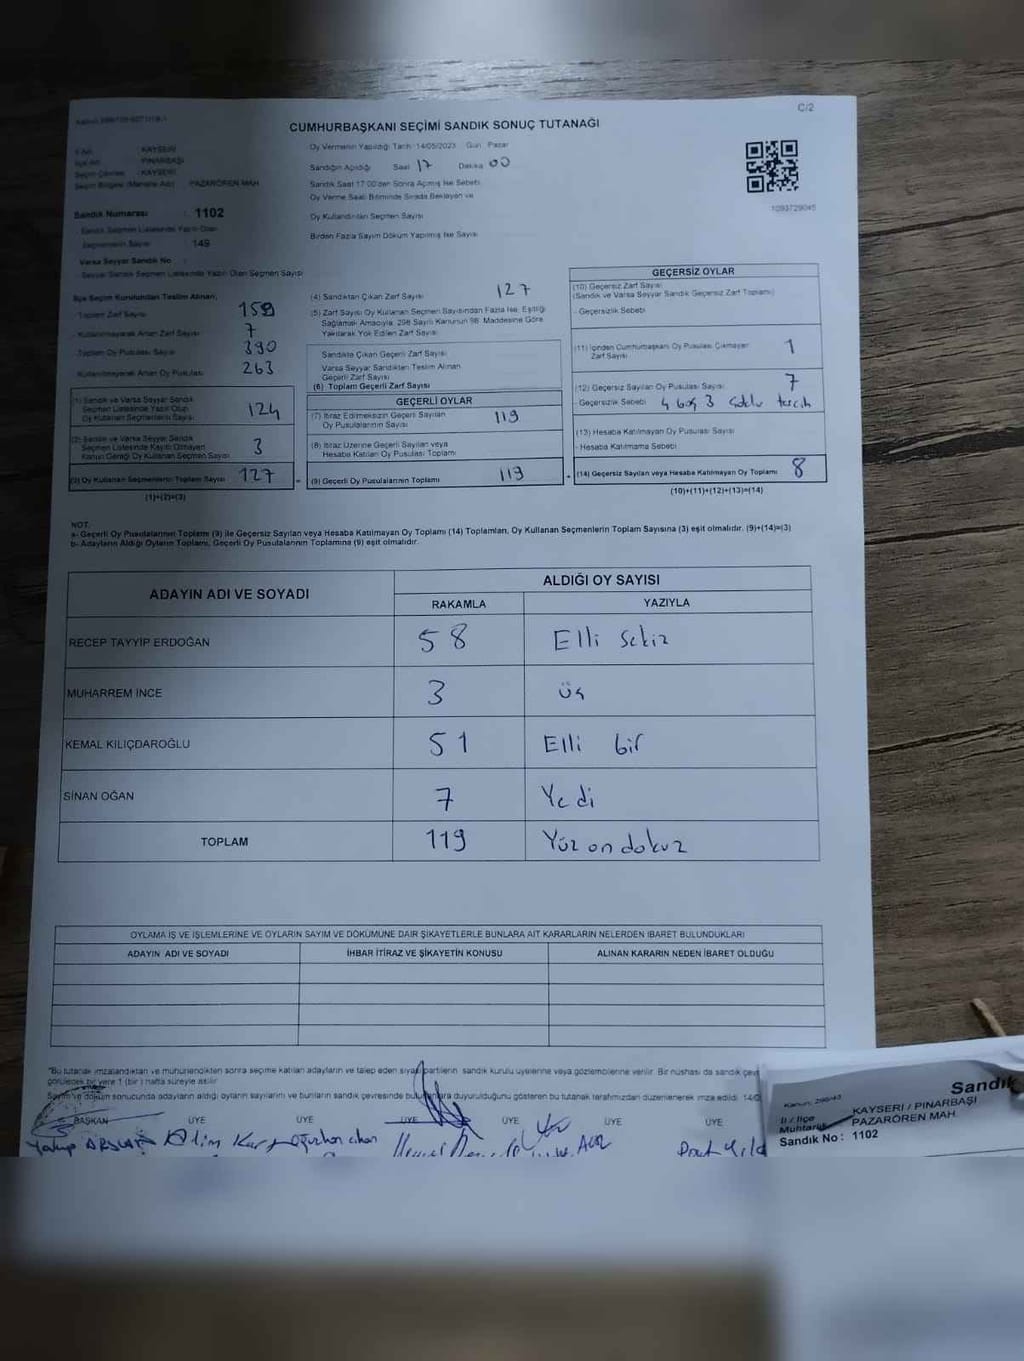 C/2
CUMHURBAŞKANI SEÇİMİ SANDIK SONUÇ TUTANAĞI
Oy Vermenin Yapıldığı Tarih 14/05/2023 Gün Pazar
KAYSERİ
Sandığın Açıldığı Saat 17 Dakika 00
PINARBAŞI
KAYSERİ
Sandık Saat 17:00'den Sonra Açılmış İse Sebebi
PAZARÖREN MAH
Oy Verme Saati Bitiminde Sırada Bekleyen ve
Oy Kullandırılan Seçmen Sayısı
1093729045
Sandık Numarası : 1102
Sandık Seçmen Listesinde Yazılı Olan
Seçmenlerin Sayısı : 149
Birden Fazla Sayım Döküm Yapılmış İse Sayısı
Varsa Seyyar Sandık No :
Seyyar Sandık Seçmen Listesinde Yazılı Olan Seçmen Sayısı
İlçe Seçim Kurulundan Teslim Alınan;
Toplam Zarf Sayısı 159
Kullanılmayarak Artan Zarf Sayısı 7
Toplam Oy Pusulası Sayısı 390
Kullanılmayarak Artan Oy Pusulası 263
(1) Sandık ve Varsa Seyyar Sandık
Seçmen Listesinde Yazılı Olup
Oy Kullanan Seçmenlerin Sayısı 124
(2) Sandık ve Varsa Seyyar Sandık
Seçmen Listesinde Kayıtlı Olmayan
Kanun Gereği Oy Kullanan Seçmen Sayısı 3
(3) Oy Kullanan Seçmenlerin Toplam Sayısı 127
(1)+(2)=(3)
(4) Sandıktan Çıkan Zarf Sayısı 127
(5) Zarf Sayısı Oy Kullanan Seçmen Sayısından Fazla İse, Eşitliği
Sağlamak Amacıyla, 298 Sayılı Kanunun 98. Maddesine Göre
Yakılarak Yok Edilen Zarf Sayısı
Sandıkta Çıkan Geçerli Zarf Sayısı
Varsa Seyyar Sandıktan Teslim Alınan
Geçerli Zarf Sayısı
(6) Toplam Geçerli Zarf Sayısı
GEÇERLİ OYLAR
(7) İtiraz Edilmeksizin Geçerli Sayılan
Oy Pusulalarının Sayısı 119
(8) İtiraz Üzerine Geçerli Sayılan veya
Hesaba Katılan Oy Pusulası Toplamı
(9) Geçerli Oy Pusulalarının Toplamı 119
GEÇERSİZ OYLAR
(10) Geçersiz Zarf Sayısı
(Sandık ve Varsa Seyyar Sandık Geçersiz Zarf Toplamı)
- Geçersizlik Sebebi
(11) İçinden Cumhurbaşkanı Oy Pusulası Çıkmayan
Zarf Sayısı 1
(12) Geçersiz Sayılan Oy Pusulası Sayısı 7
- Geçersizlik Sebebi 4 boş 3 çoklu tercih
(13) Hesaba Katılmayan Oy Pusulası Sayısı
- Hesaba Katılmama Sebebi
(14) Geçersiz Sayılan veya Hesaba Katılmayan Oy Toplamı 8
(10)+(11)+(12)+(13)=(14)
NOT:
a- Geçerli Oy Pusulalarının Toplamı (9) ile Geçersiz Sayılan veya Hesaba Katılmayan Oy Toplamı (14) Toplamları, Oy Kullanan Seçmenlerin Toplam Sayısına (3) eşit olmalıdır. (9)+(14)=(3)
b- Adayların Aldığı Oyların Toplamı, Geçerli Oy Pusulalarının Toplamına (9) eşit olmalıdır.
ADAYIN ADI VE SOYADI
ALDIĞI OY SAYISI
RAKAMLA YAZIYLA
RECEP TAYYİP ERDOĞAN 58 Elli Sekiz
MUHARREM İNCE 3 Üç
KEMAL KILIÇDAROĞLU 51 Elli bir
SİNAN OĞAN 7 Yedi
TOPLAM 119 Yüz on dokuz
OYLAMA İŞ VE İŞLEMLERİNE VE OYLARIN SAYIM VE DÖKÜMÜNE DAİR ŞİKAYETLERLE BUNLARA AİT KARARLARIN NELERDEN İBARET BULUNDUKLARI
ADAYIN ADI VE SOYADI İHBAR İTİRAZ VE ŞİKAYETİN KONUSU ALINAN KARARIN NEDEN İBARET OLDUĞU
"Bu tutanak imzalandıktan ve mühürlendikten sonra seçime katılan adayların ve talep eden siyasi partilerin sandık kurulu üyelerine veya gözlemcilerine verilir. Bir nüshası da sandık
görülecek bir yere 1 (bir) hafta süreyle asılır
Sayım ve döküm sonucunda adayların aldığı oyların sayılarını ve bunların sandık çevresinde duyurulduğunu gösteren bu tutanak tarafımızdan düzenlenerek imza edildi.
BAŞKAN ÜYE ÜYE ÜYE ÜYE ÜYE ÜYE
Sandık
İl / İlçe KAYSERİ / PINARBAŞI
PAZARÖREN MAH
Sandık No : 1102